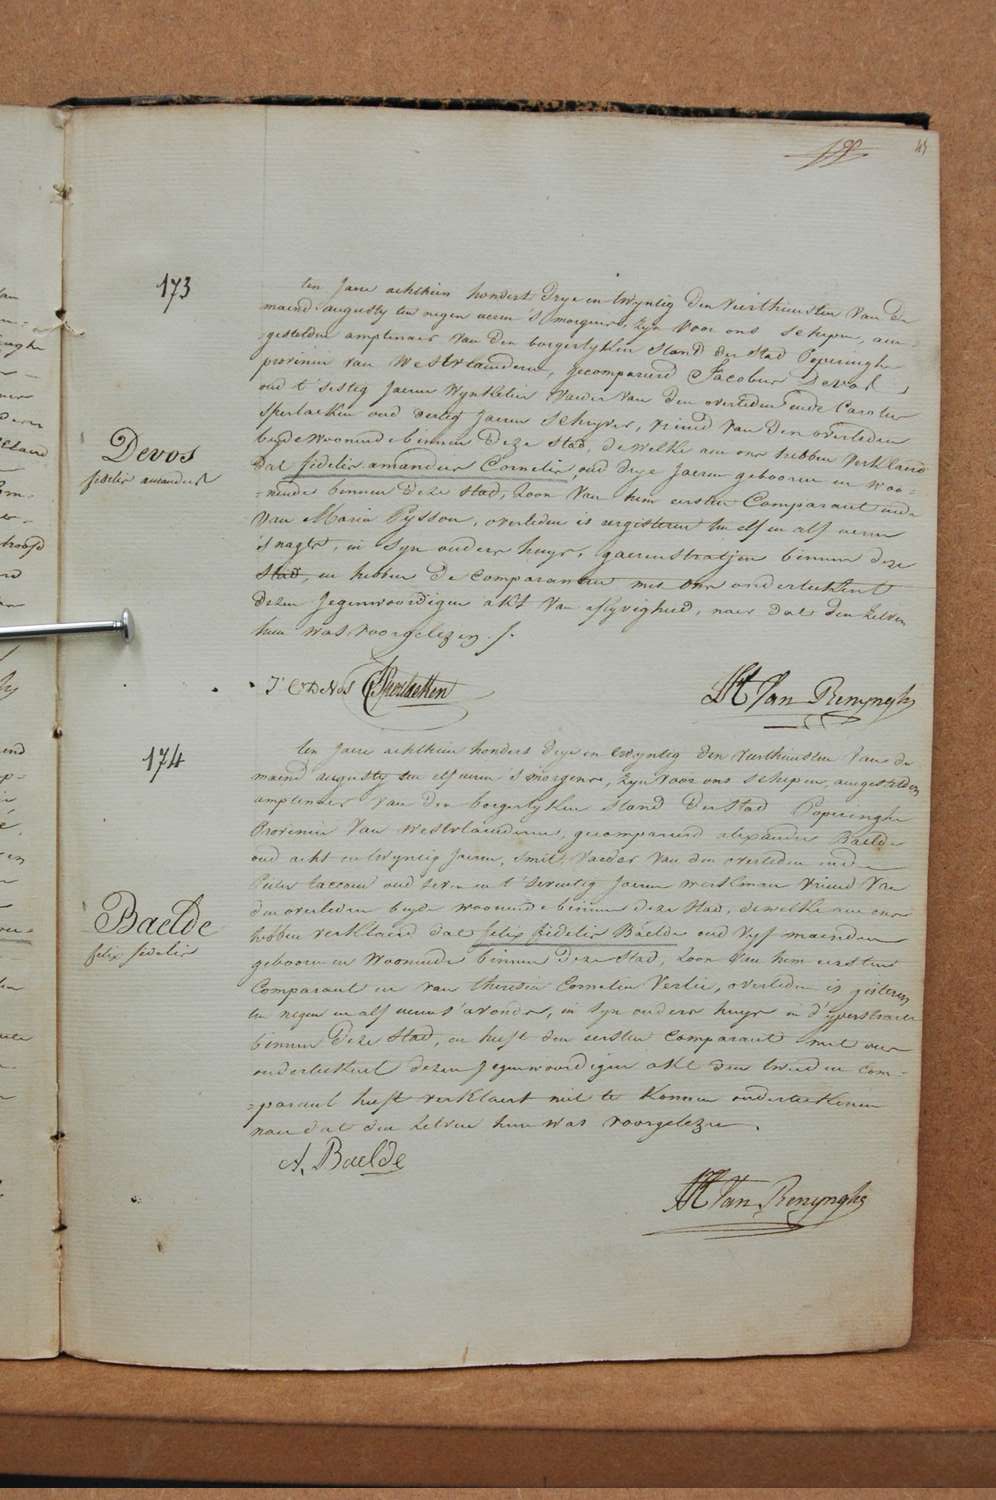 45
173
ten Jaere achthien hondert drye en twyntig den vierthiensten van de
maend augusty ten negen ueren 's morgens, zyn voor ons schepen, aen-
gestelden amptenaer van den borgerlyken stand der stad Poperinghe
provincie van Westvlaenderen, gecompareerd Jacobus Devos,
oud t'sestig Jaeren Wynkelier vaeder van den overleden ende Carolus
Sperlaeken oud dertig Jaeren schryver, vriend van den overleden
beyde woonende binnen deze stad, dewelke aen ons hebben verklaerd
Devos
fidelis amandus
dat fidelis amandus Cornelis, oud drye Jaeren gebooren en woo-
-nende binnen deze stad, zoon van hem eersten Comparant ende
van Maria Pysson, overleden is eergisteren ten elf en alf ueren
's nagts, in syn ouders huys, gaerenstratjen binnen deze
stad, en hebben de comparanten met ons onderteekent
dezen Jegenwoordigen akt van aflyvigheid, naer dat den zelven
hun was voorgelezen.
J C DeVos CSperlaeken
H Van Renynghe
174
ten Jaere achthien hondert drye en twyntig den vierthiensten van de
maend augusty ten elf ueren 's morgens, zyn voor ons schepen, aengestelden
amptenaer van den borgerlyken stand der stad Poperinghe
Provincie van Westvlaenderen, gecompareerd alexander Baelde
oud acht en twyntig Jaeren, smit, vaeder van den overleden ende
Pieter taccoen oud seven en t'seventig Jaeren werkman vriend van
den overleden beyde woonende binnen deze stad, dewelke aen ons
Baelde
felix fidelis
hebben verklaerd dat felix fidelis Baelde oud vyf maenden
gebooren en woonende binnen deze stad, zoon van hem eersten
Comparant en van theresia Cornelia Verlie, overleden is gisteren
ten negen en alf ueren s'avonds, in syn ouders huys in d'yperstraete
binnen deze stad, en heeft den eersten comparant met ons
onderteekent dezen Jegenwoordigen akt den tweeden com-
-parant heeft verklaert niet te konnen onderteekenen
naer dat den zelven hun was voorgelezen.
A. Baelde
H Van Renynghe